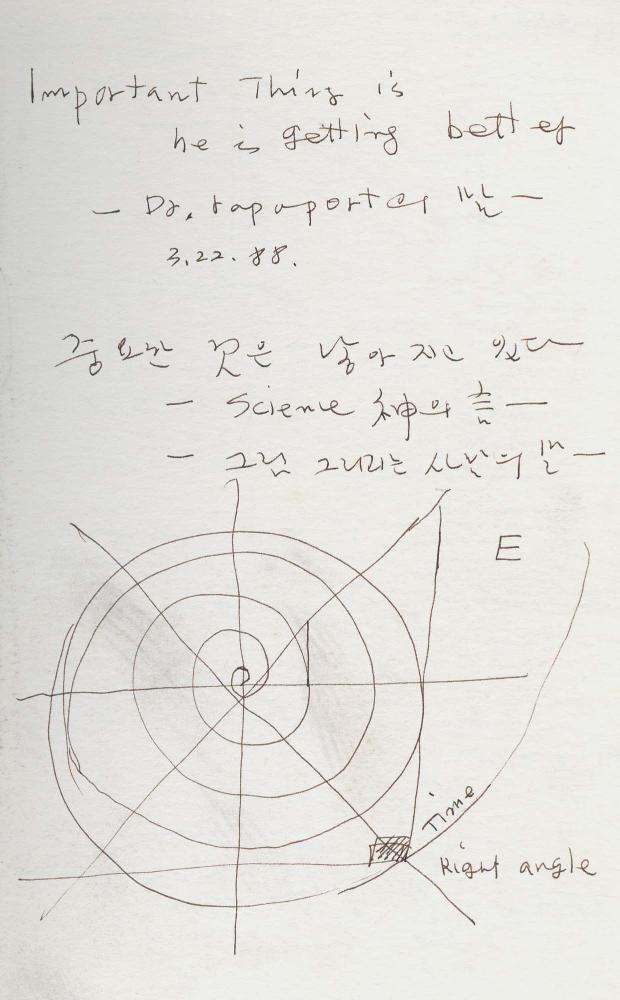 Important Thing is
he is getting better
— Dr. rapaport의 말 —
3.22.88.
중요한 것은 낳아 지고 있다
— Science 神의 —
— 그림 그리는 사람의 말 —
E
Time
Right angle